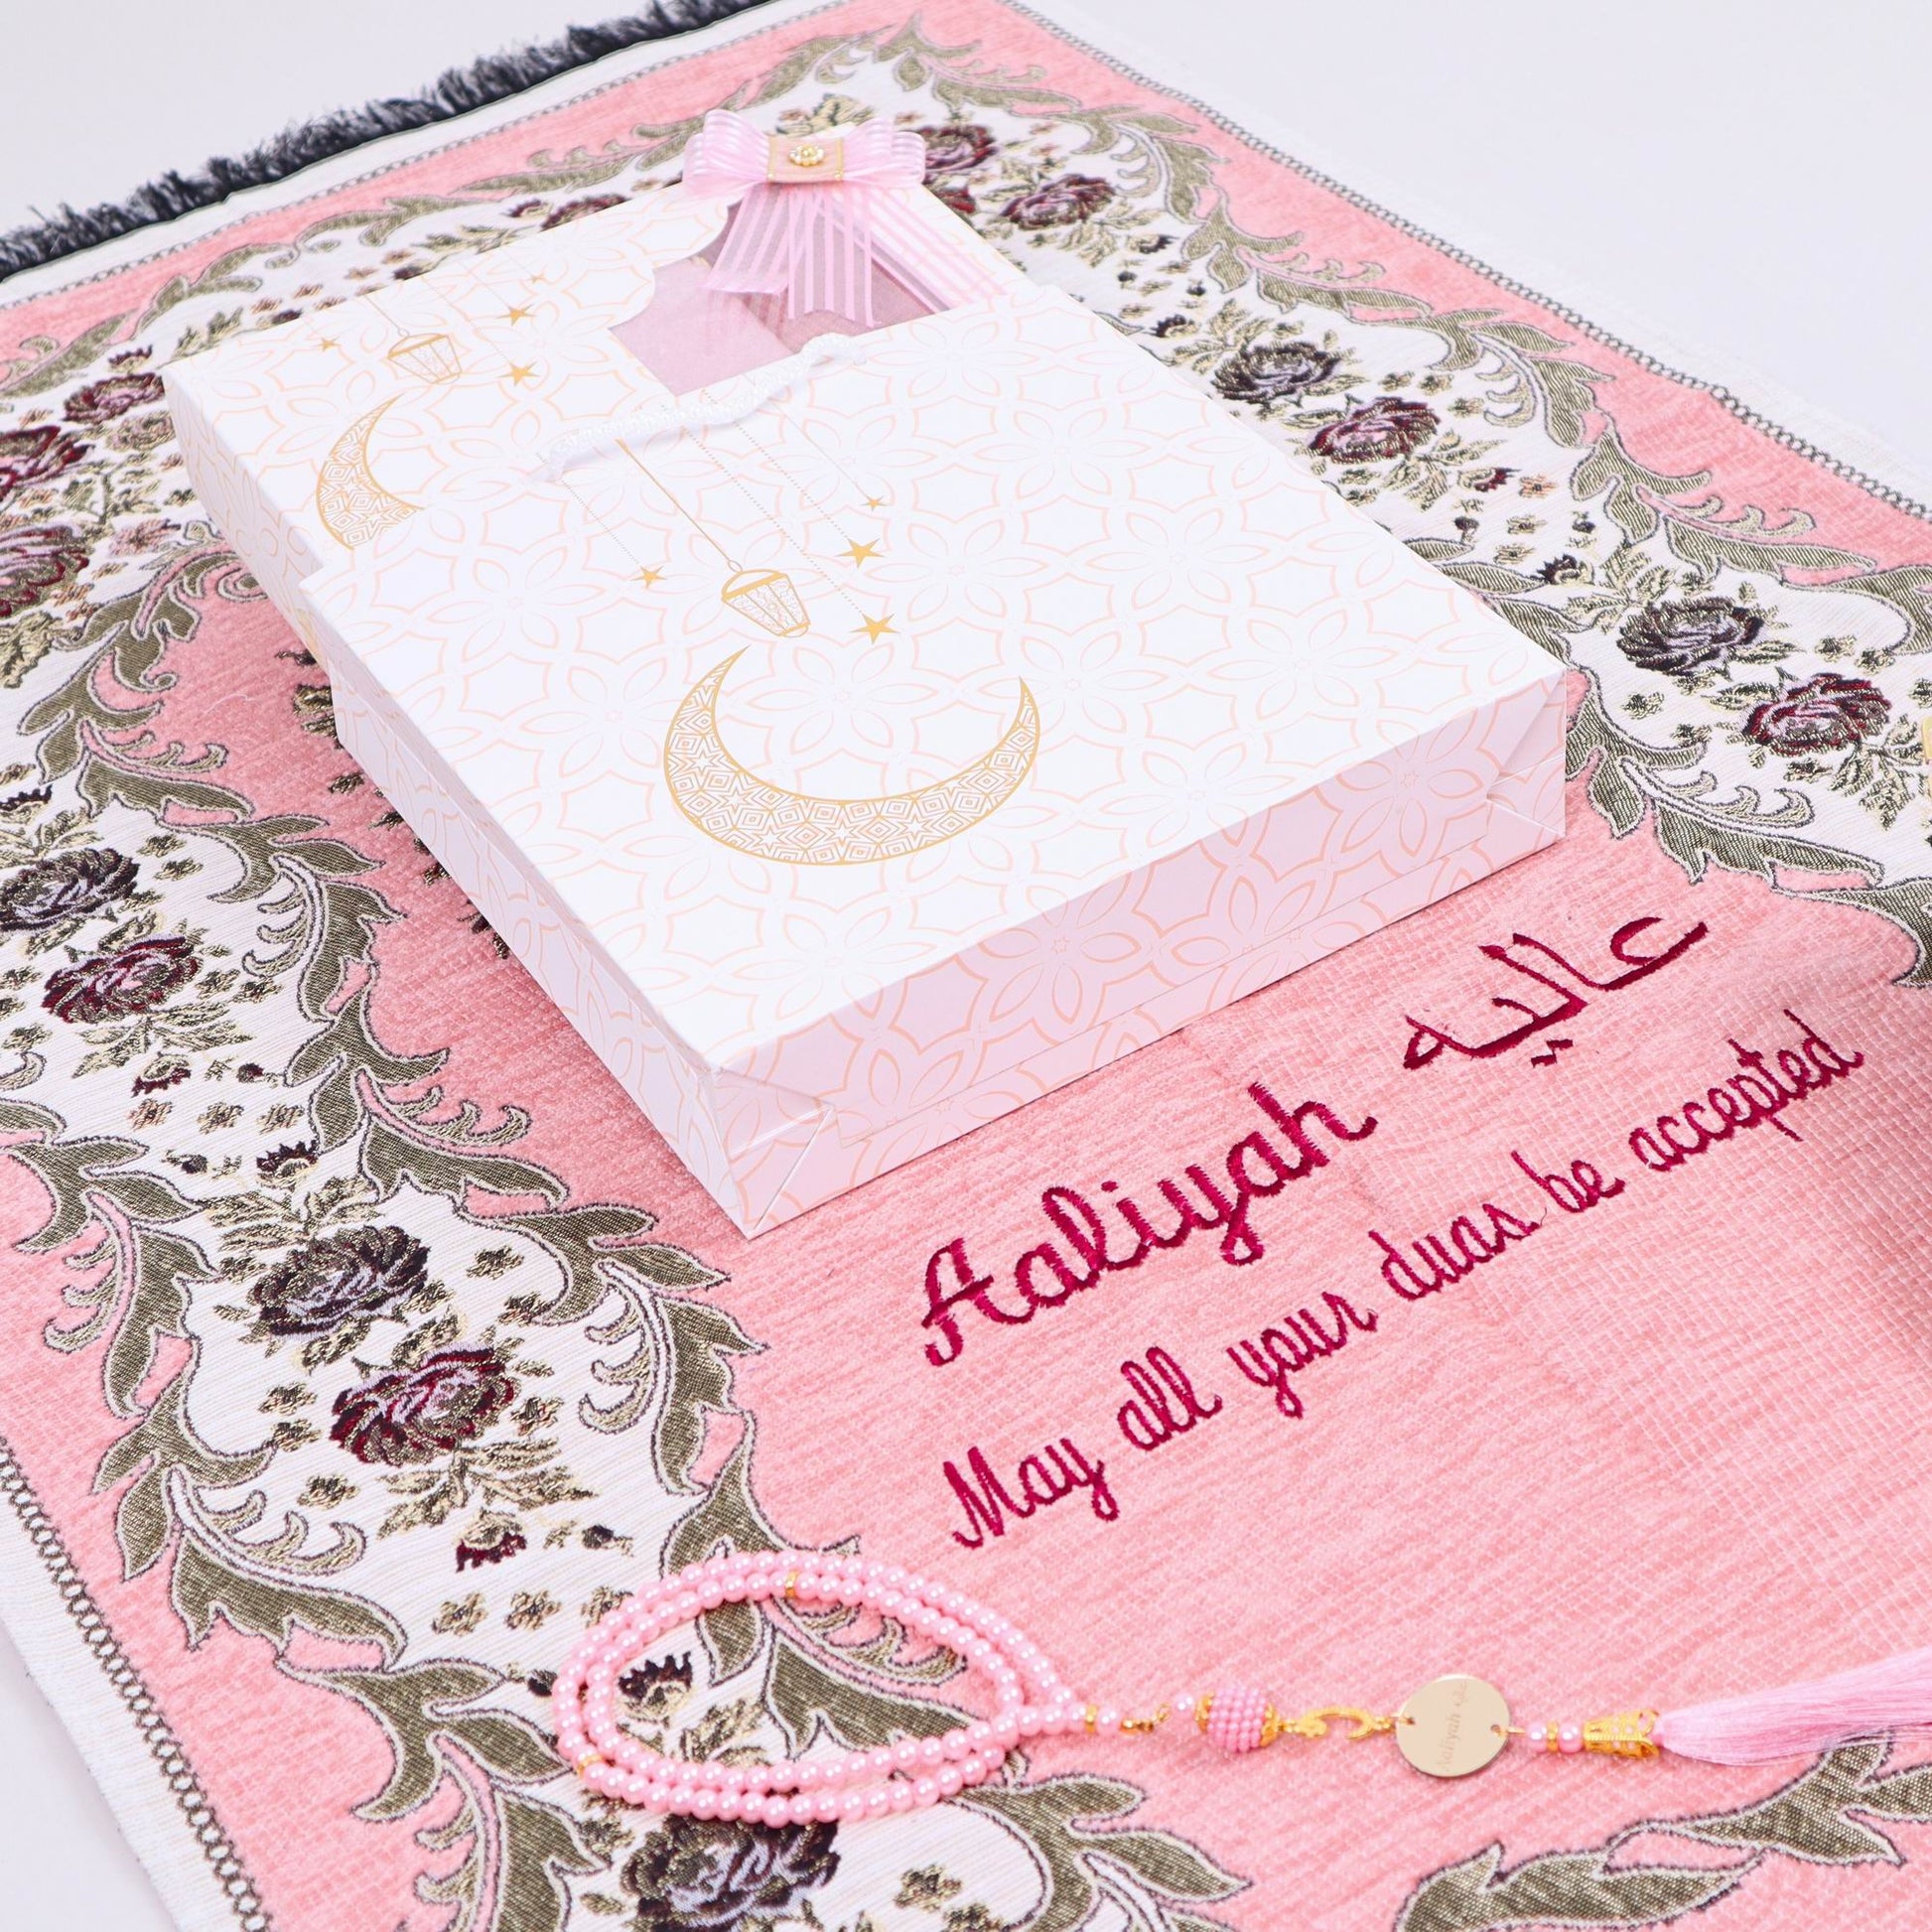 عاليه
Aaliyah
May all your duas be accepted
Aaliyah عاليه